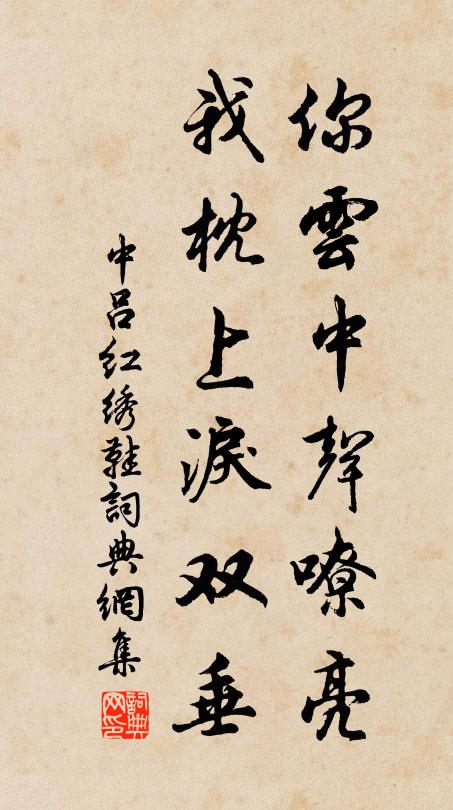 你雲中聲嘹亮
我枕上淚双垂
中吕红绣鞋詞典網集
詞典网印